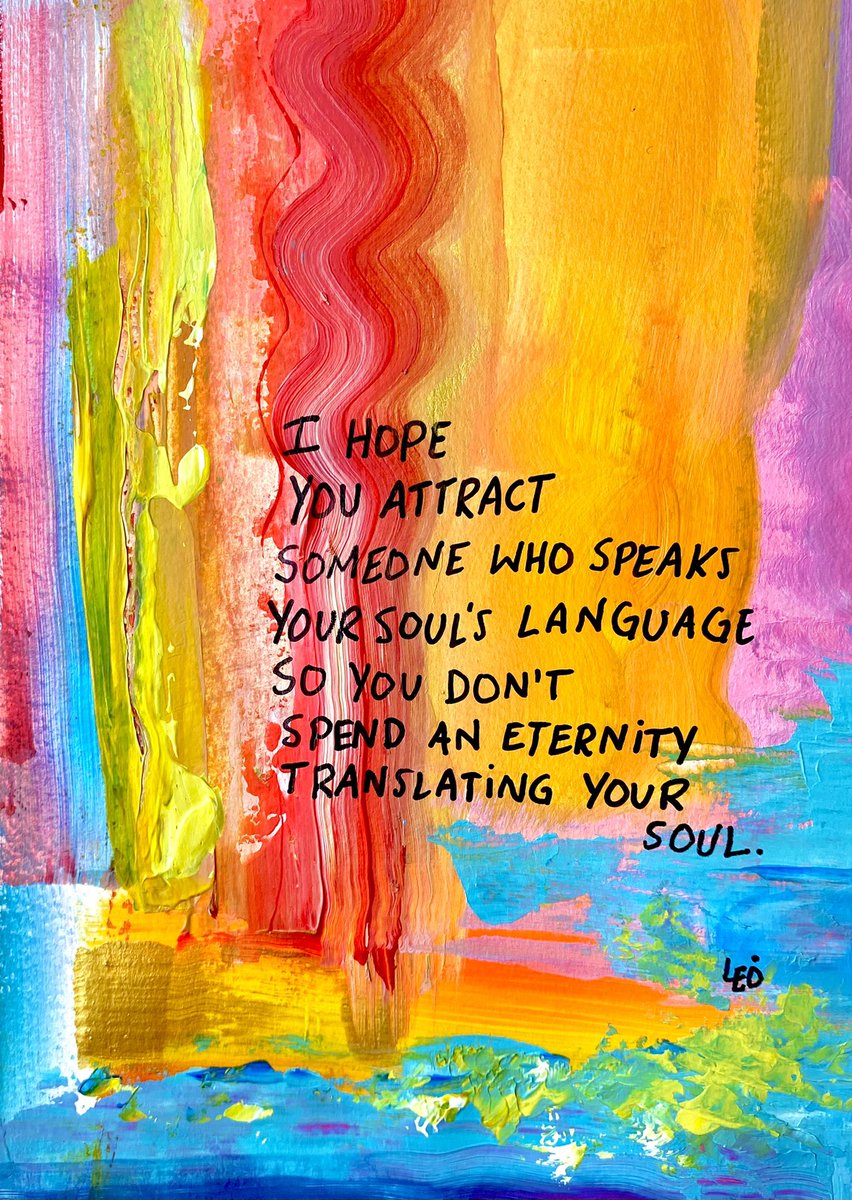 I HOPE
YOU ATTRACT
SOMEONE WHO SPEAKS
YOUR SOUL'S LANGUAGE
SO YOU DON'T
SPEND AN ETERNITY
TRANSLATING YOUR
SOUL.
LEO